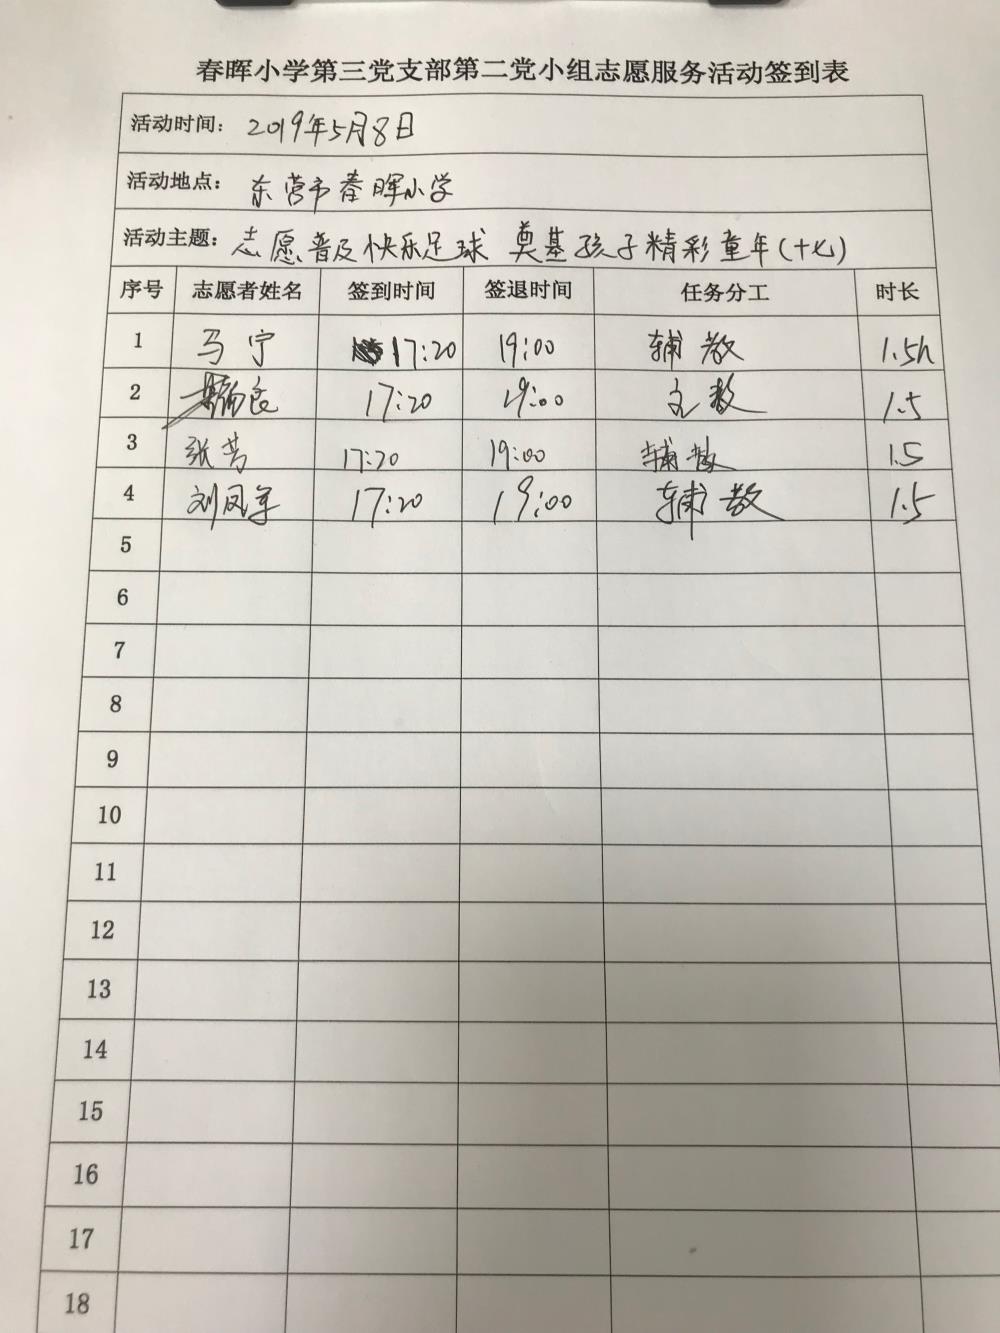 春晖小学第三党支部第二党小组志愿服务活动签到表
活动时间: 2019年5月8日
活动地点: 东营市春晖小学
活动主题: 志愿普及快乐足球 奠基孩子精彩童年(十七)
序号 志愿者姓名 签到时间 签退时间 任务分工 时长
1 马宁 17:20 19:00 辅教 1.5h
2 17:20 19:00 主教 1.5
3 张芳 17:20 19:00 辅教 1.5
4 刘凤军 17:20 19:00 辅教 1.5
5
6
7
8
9
10
11
12
13
14
15
16
17
18